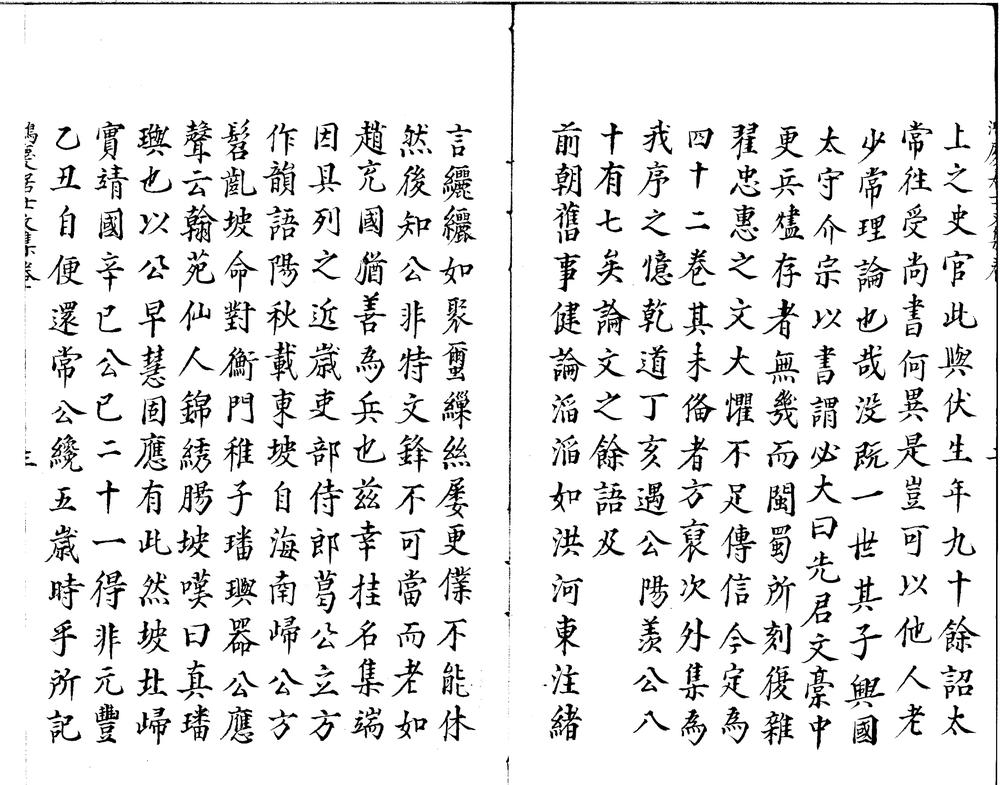 上之史官此與伏生年九十餘詔太
常往受尚書何異是豈可以他人老
少常理論也哉没既一世其子興國
太守介宗以書謂必大曰先君文稾中
更兵燼存者無幾而閩蜀所刻復雜
翟忠惠之文大懼不足傳信今定為
四十二卷其未俻者方裒次外集為
我序之憶乾道丁亥遇公陽羨公八
十有七矣論文之餘語及
前朝舊事健論滔滔如洪河東注緒
言纚纚如聚蠒繅絲屡更僕不能休
然後知公非特文鋒不可當而老如
趙充國猶善為兵也茲幸桂名集端
因具列之近嵗吏部侍郎葛公立方
作韻語陽秋載東坡自海南歸公方
髫齔坡命對衡門稚子璠璵器公應
聲云翰苑仙人錦綉腸坡嘆曰真璠
璵也以公早慧固應有此然坡北歸
實靖國辛巳公已二十一得非元豐
乙丑自便還常公纔五嵗時乎所記
鴻慶居士文集卷
三